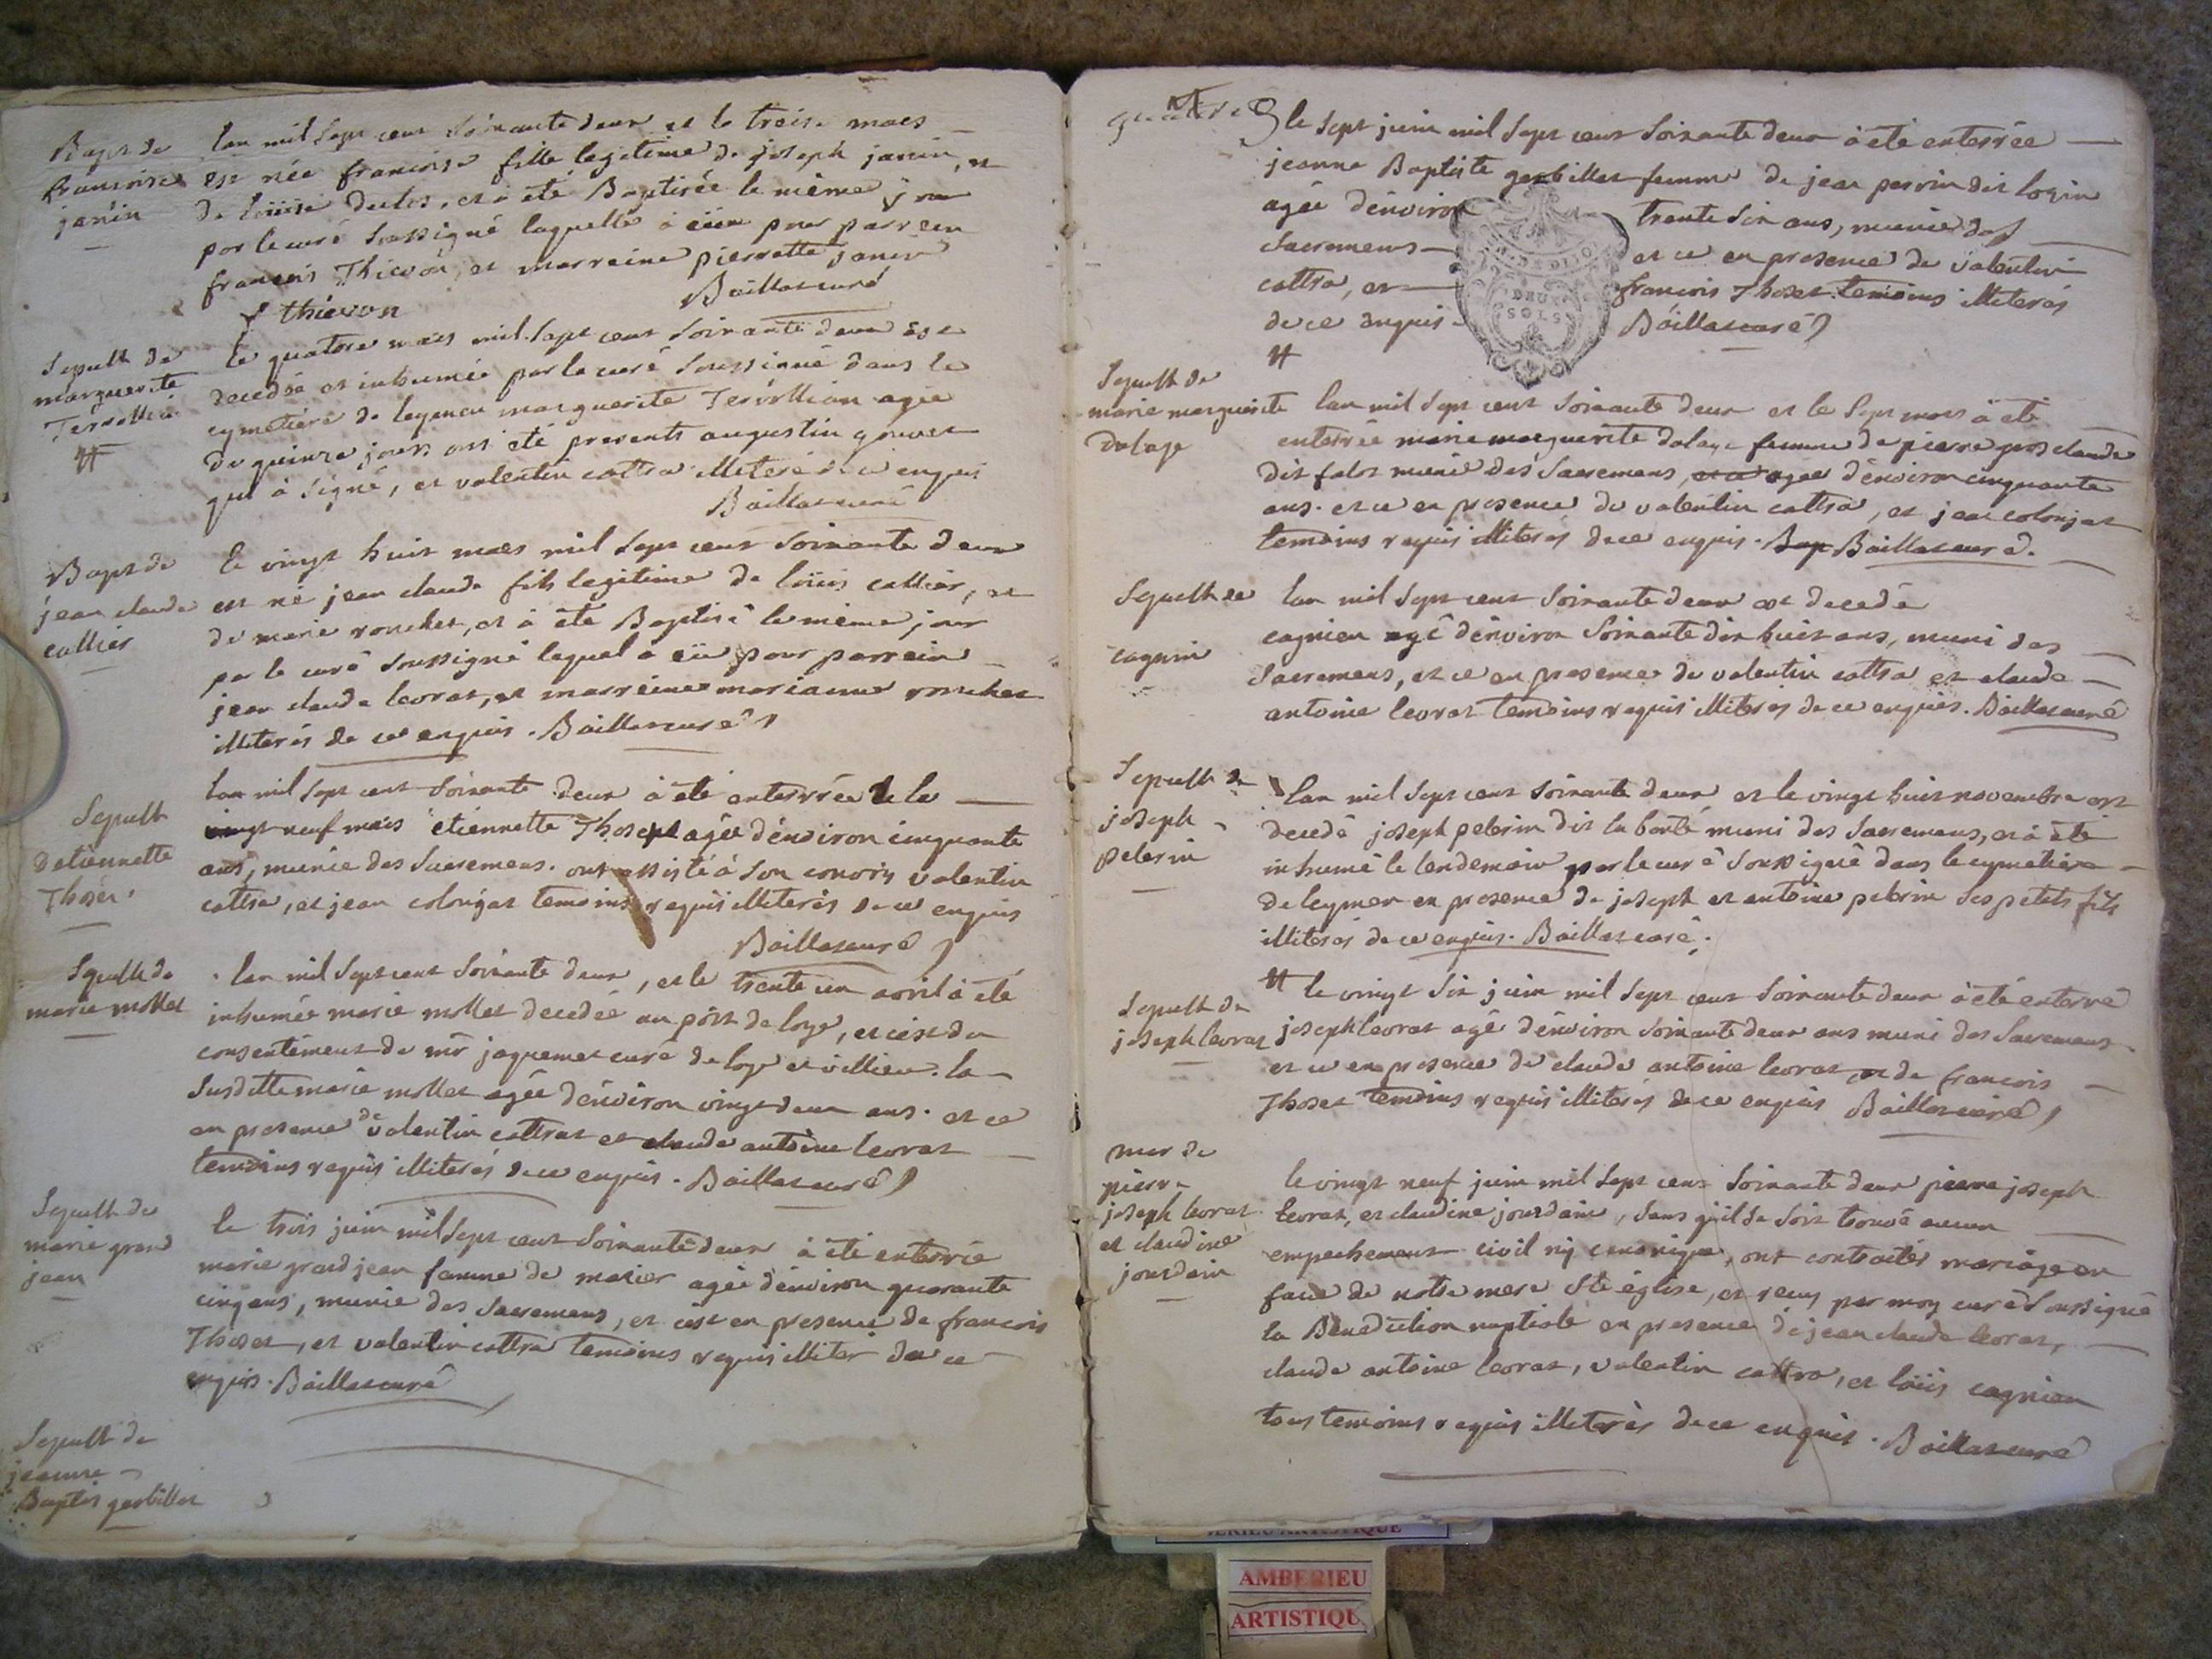 Bapt de
francoise
janin
lan mil sept cent soixante deux et le treise mars
est née francoise fille legitime de joseph janin, et
de loüise duclos, et à été Baptisée le même jour
par le curé soussigné laquelle à eüe pour parrein
francois Thievon, et marreine pierrette janin
f thievon Baillat curé
Sepult de
marguerite
le quatorse mars mil sept cent soixante deux est
decedée et inhumée par le curé soussigné dans le
cymetiére de leyment marguerite agée
de quinze jours ont été presents augustin gouvet
qui à signé, et valentin cattra illiteré de ce enquis
Baillat curé
Bapt de
jean claude
cullier
le vingt huit mars mil sept cent soixante deux
est né jean claude fils legitime de loüis cullier, et
de marie ronchet, et à été Baptisé le même jour
par le curé soussigné lequel à eü pour parrein
jean claude levrat, et marreine marianne ronchet
illiterés de ce enquis. Baillat curé
Sepult
detiennette
Thoset
lan mil sept cent soixante deux à été enterrée le
vingt neuf mars étiennette Thoset agée d'énviron cinquante
ans, munie des Sacremens. ont assisté à son convoy valentin
cattra, et jean colonjat temoins requis illiterés de ce enquis
Baillat curé
Sepult de
marie mollet
lan mil sept cent soixante deux, et le trente un avril à été
inhumée marie mollet decedée au port de loye, et c'est du
consentément de mr jaquemet curé de loye et villieu. la
susditte marie mollet agée d'énviron vingt deux ans. et ce
en presence de valentin cattrat et claude antoine levrat
temoins requis illiterés de ce enquis. Baillat curé
Sepult de
marie grand
jean
le trois juin mil sept cent soixante deux à été enterrée
marie grand jean femme de masier agée d'énviron quarante
cinq ans, munie des Sacremens, et c'est en presence de francois
Thoset, et valentin cattra temoins requis illiter de ce
enquis. Baillat curé
Sepult de
jeanne
Baptis gerbillat
quatre
le sept juin mil sept cent soixante deux à été enterrée
jeanne Baptiste gerbillat femme de jean perrin dit lozin
agée d'énviron trente six ans, munie des
Sacremens et ce en presence de valentin
cattra, et francois Thoset temoins illiterés
de ce enquis Baillat curé
DEUX
SOLS
Sepult de
marie marguerite
dalage
lan mil sept cent soixante deux et le sept mars à été
enterrée marie marguerite dalage femme de pierre gros claude
dit falot munie des Sacremens, agée d'énviron cinquante
ans. et ce en presence de valentin cattra, et jean colonjat
temoins requis illiterés de ce enquis. Baillat curé.
Sepult de
cagnin
lan mil sept cent soixante deux est decedé
cagnieu agé d'énviron soixante dix huit ans, muni des
Sacremens, et ce en presence de valentin cattra et claude
antoine levrat temoins requis illiterés de ce enquis. Baillat curé
Sepult de
joseph
pelerin
lan mil sept cent soixante deux, et le vingt huit novembre est
decedé joseph pelerin dit la bonté muni des Sacremens, et à été
inhumé le lendemain par le curé soussigné dans le cymetiere
de leyment en presence de joseph et antoine pelerin ses petits fils
illiterés de ce enquis. Baillat curé.
Sepult de
joseph levrat
le vingt six juin mil sept cent soixante deux à été enterré
joseph levrat agé d'énviron soixante deux ans muni des Sacremens
et ce en presence de claude antoine levrat et de francois
Thoset temoins requis illiterés de ce enquis Baillat curé
mar de
pierre
joseph levrat
et claudine
jourdain
le vingt neuf juin mil sept cent soixante deux pierre joseph
levrat, et claudine jourdain, sans qu'il se soit trouvé aucun
empechement civil ny canonique, ont contracté mariage en
face de notre mere Ste église, et reçu par moy curé soussigné
la Benediction nuptiale en presence de jean claude levrat,
claude antoine levrat, valentin cattra, et loüis cagnieu
tous temoins requis illiterés de ce enquis. Baillat curé
AMBERIEU
ARTISTIQUE